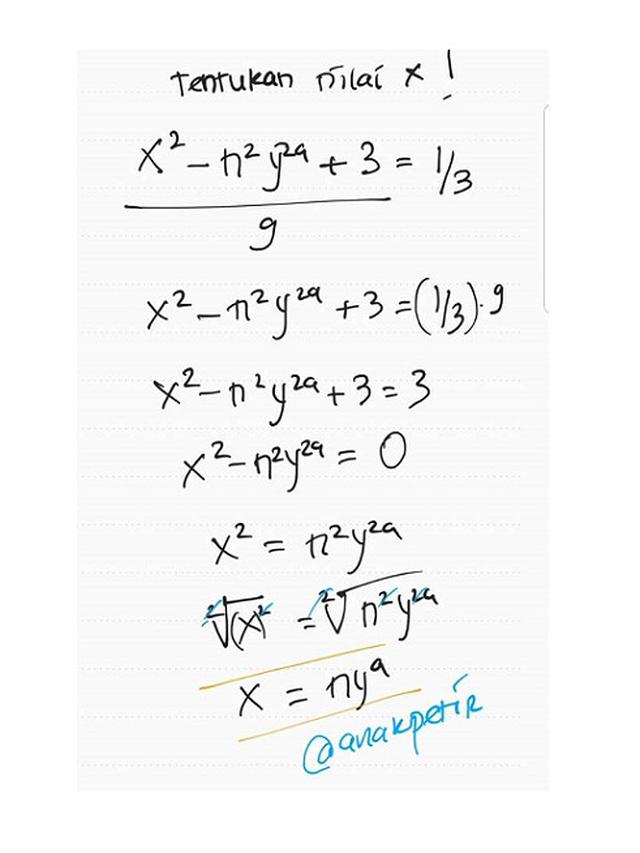 Tentukan nilai x !
x² - n² y²ᵃ + 3 = 1/3
9
x² - n² y²ᵃ + 3 = (1/3) . 9
x² - n² y²ᵃ + 3 = 3
x² - n²y²ᵃ = 0
x² = n²y²ᵃ
²√(x)² = ²√n²y²ᵃ
x = nyᵃ
@anakpetir